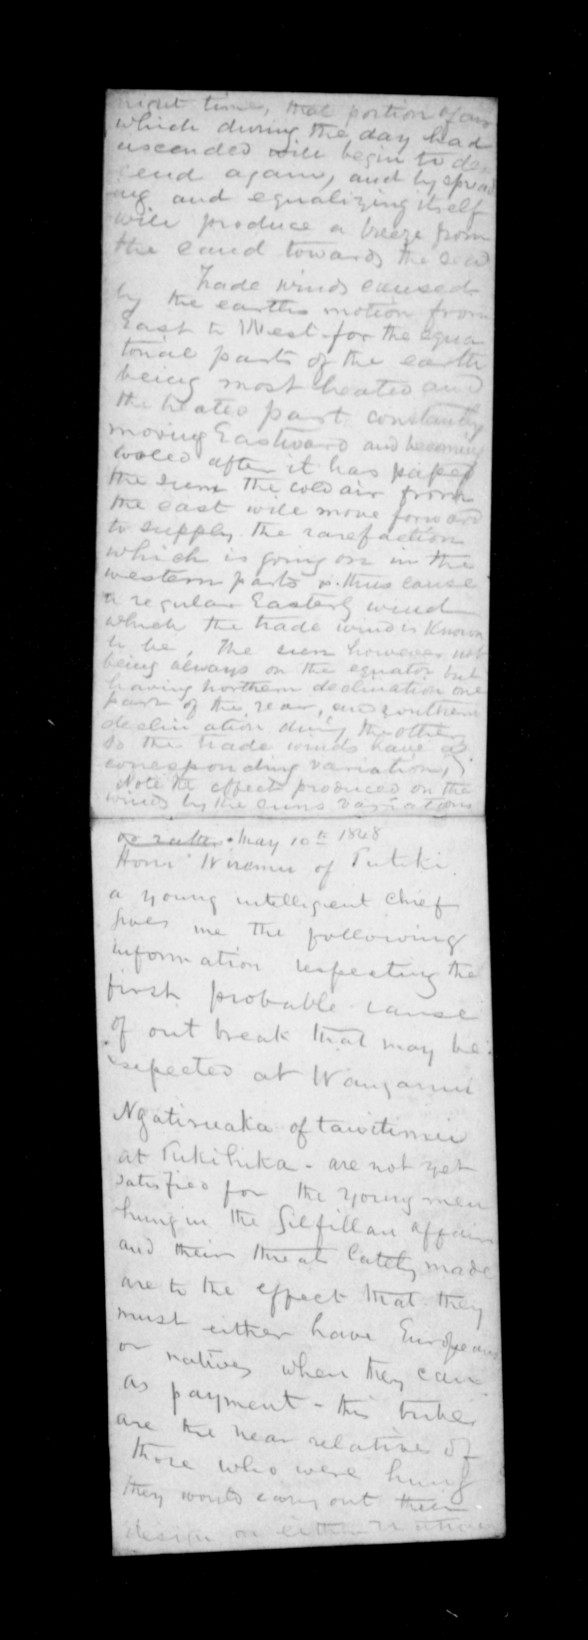 night time, that portion of air
which during the day had
ascended will begin to des
cend again, and by spread
ing and equalizing itself
will produce a breeze from
the land towards the sea
Trade winds caused
by the earths motion from
East to West for the equa
torial parts of the earth
being most heated and
the heated part constantly
moving Eastward and becoming
cooled after it has passed
the sun the cold air from
the east will move forward
to supply the rarefaction
which is going on in the
western parts & thus cause
a regular Easterly wind
which the trade wind is known
to be, The sun however not
being always on the equator but
having northern declination one
part of the year, and southern
declin ation during the other
so the trade winds have a
corresponding variation,
Note the effects produced on the
winds by the suns variations
May 10th 1848
Wiremu of Putiki.
a young intelligent chief
gives me the following
information respecting the
first probable cause
of out break that may be
expected at Wanganui
Ngatiruaka of
at Pukihika - are not yet
satisfied for the young men
hung in the Gilfillan affair
and their threats lately made
are to the effect that they
must either have Europeans
or natives when they can
as payment - this tribe
are the near relatives of
those who were hung
they would carry out their
design on either